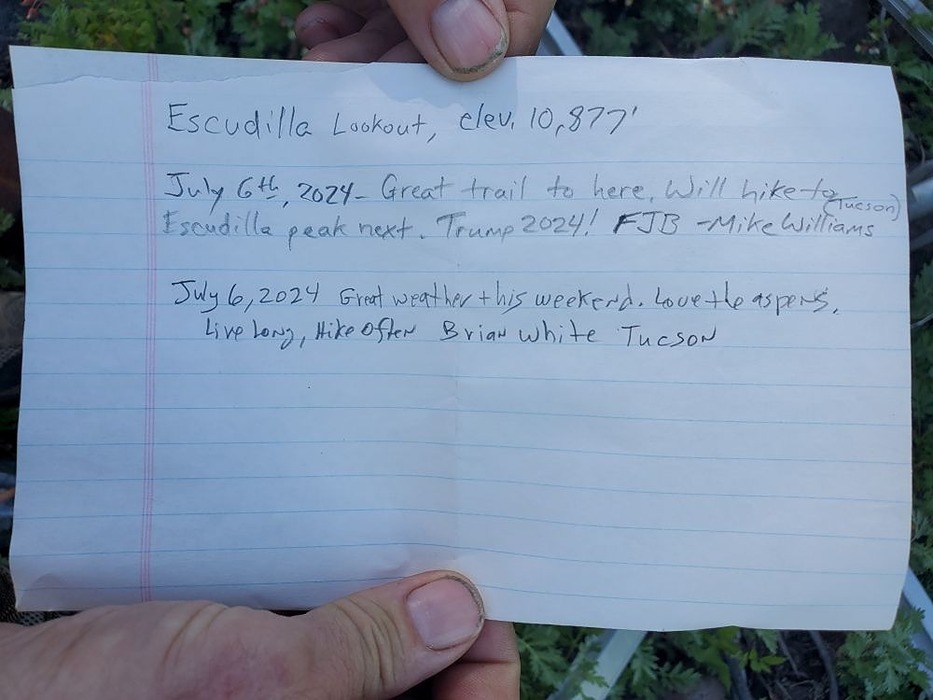 Escudilla Lookout, elev. 10,877'
July 6th, 2024 - Great trail to here. Will hike to
Escudilla peak next. Trump 2024! FJB - Mike Williams (Tucson)
July 6, 2024 Great weather this weekend. Love the aspens.
Live Long, Hike Often Brian White Tucson